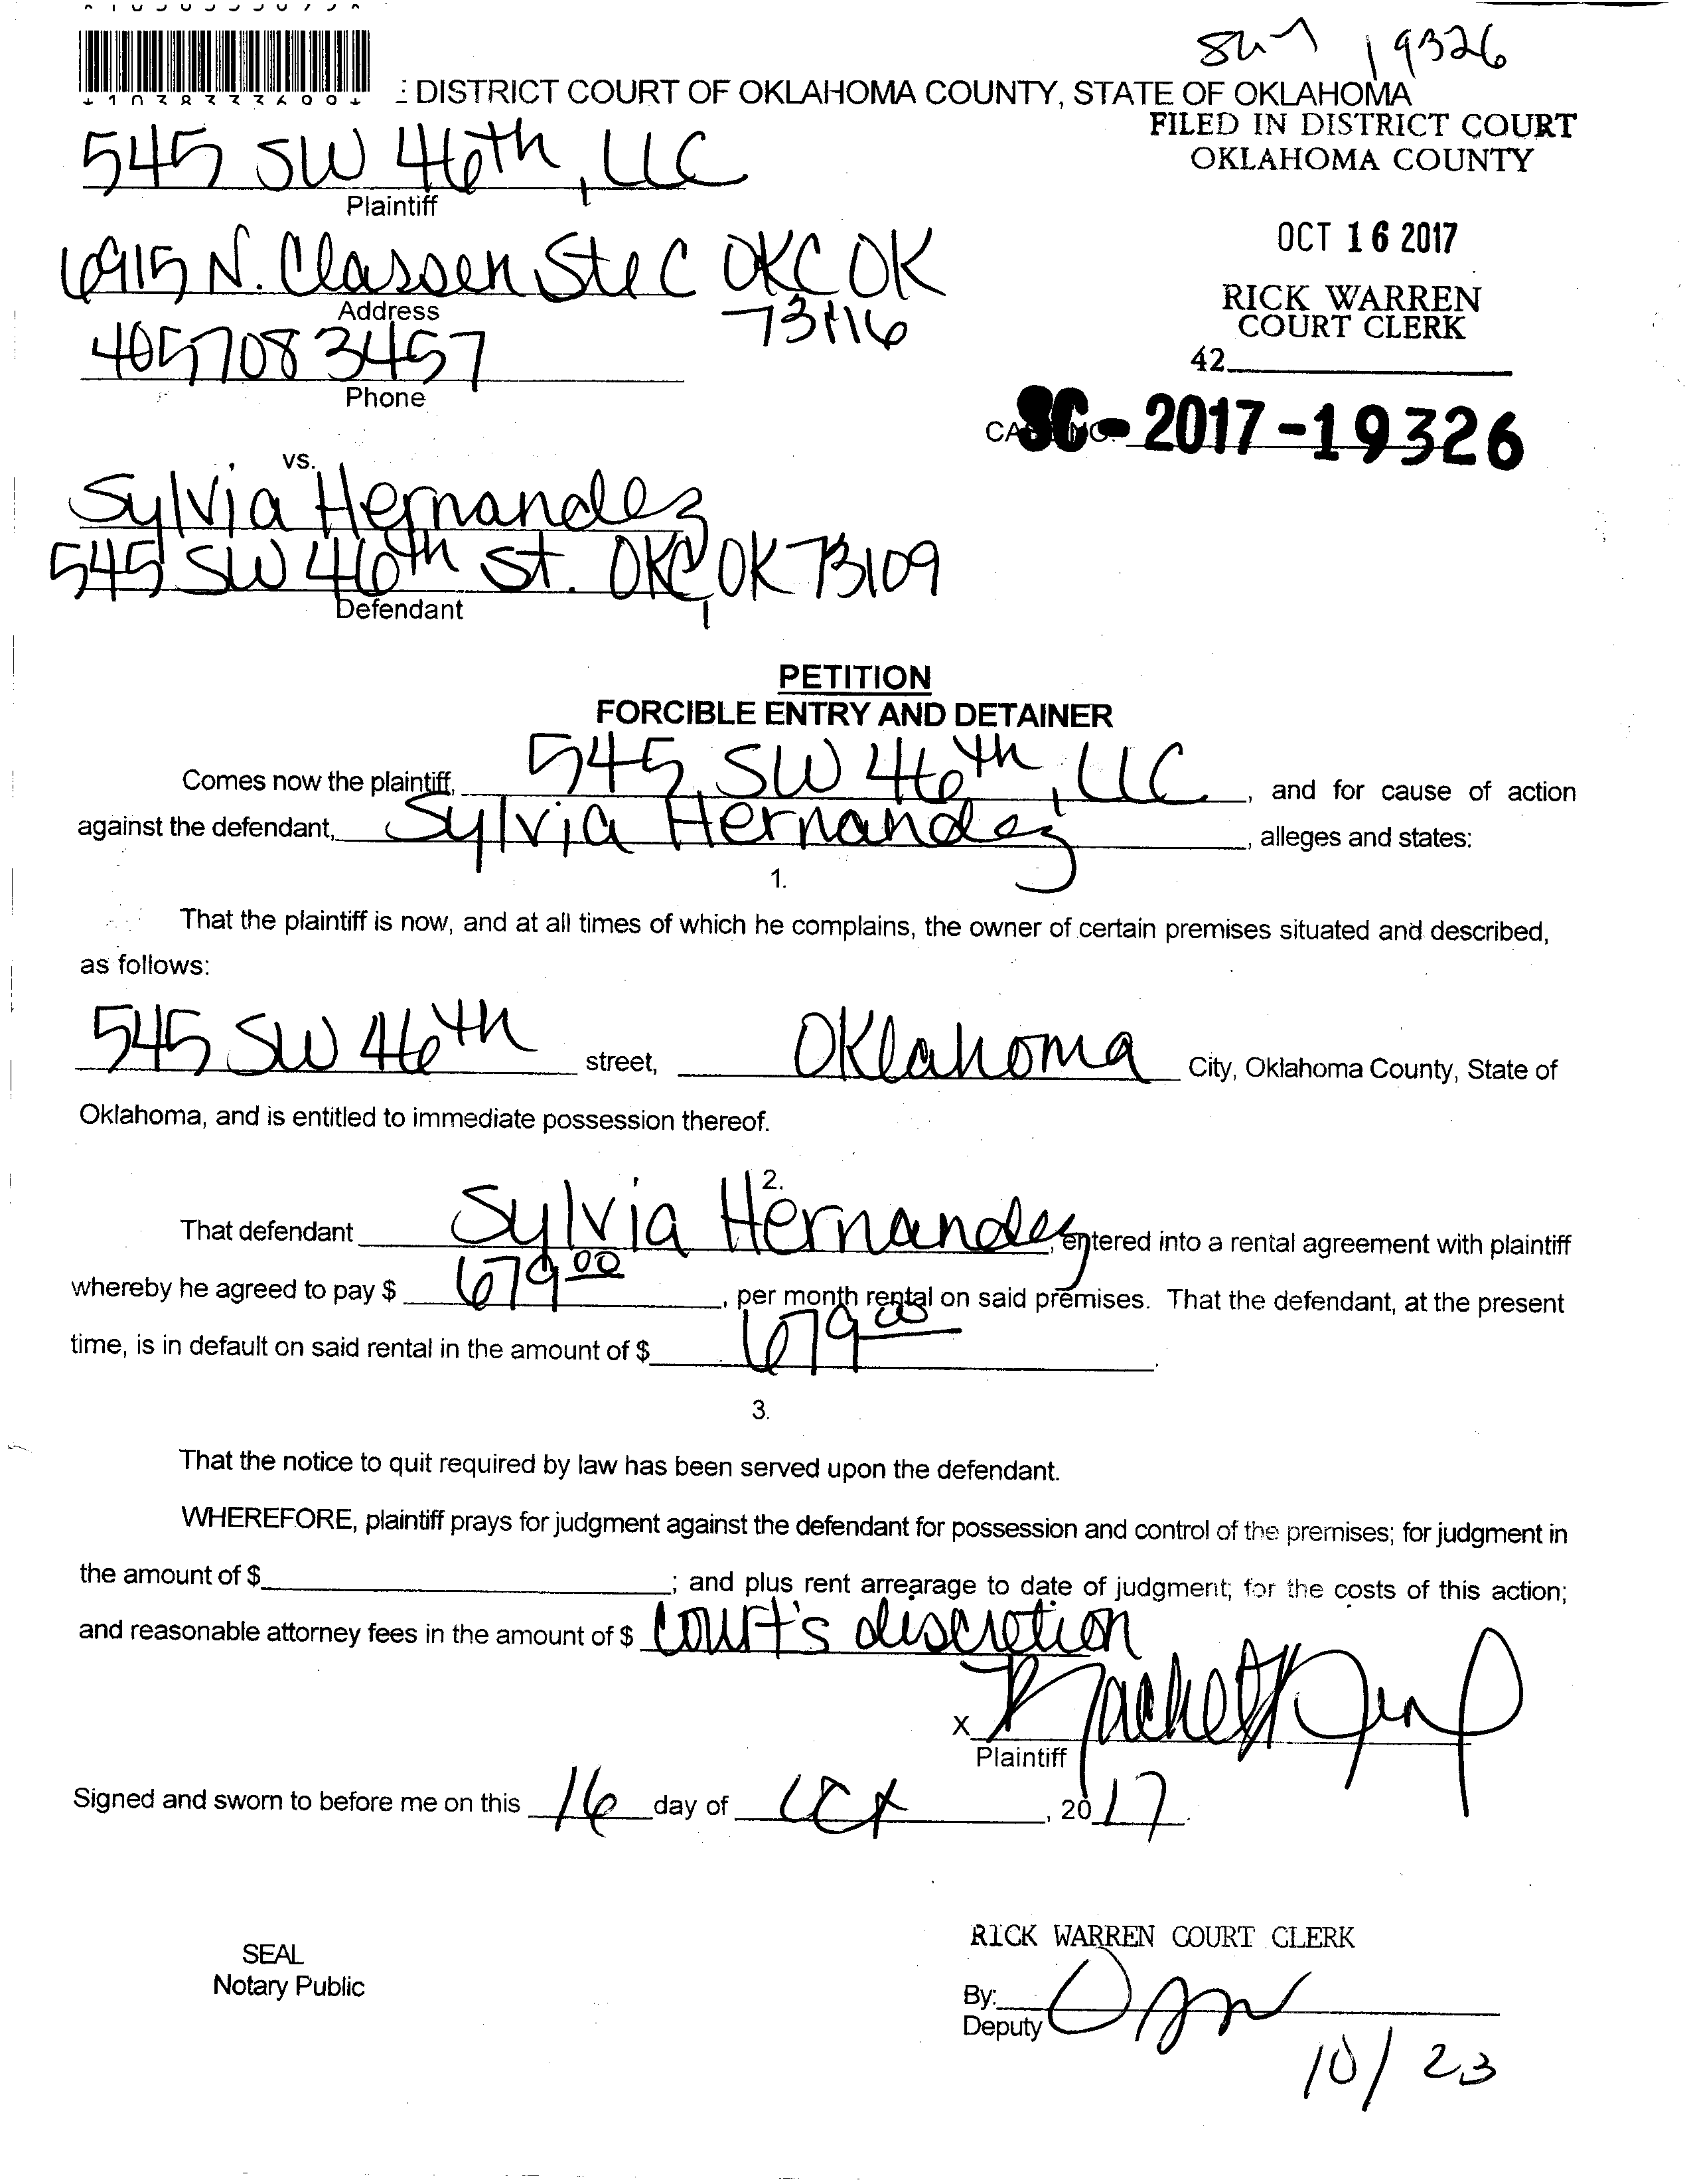 19326
DISTRICT COURT OF OKLAHOMA COUNTY, STATE OF OKLAHOMA
FILED IN DISTRICT COURT
OKLAHOMA COUNTY
545 SW 46th, LLC
Plaintiff
OCT 16 2017
6915 N. Classen Ste C OKC OK
73116
Address
RICK WARREN
COURT CLERK
4057083457
Phone
42
SC-2017-19326
vs.
Sylvia Hernandez
545 SW 46th St. OKC, OK 73109
Defendant
PETITION
FORCIBLE ENTRY AND DETAINER
Comes now the plaintiff, 545 SW 46th, LLC, and for cause of action
against the defendant, Sylvia Hernandez, alleges and states:
1.
That the plaintiff is now, and at all times of which he complains, the owner of certain premises situated and described,
as follows:
545 SW 46th street, Oklahoma City, Oklahoma County, State of
Oklahoma, and is entitled to immediate possession thereof.
2.
That defendant Sylvia Hernandez, entered into a rental agreement with plaintiff
whereby he agreed to pay $ 679 00, per month rental on said premises. That the defendant, at the present
time, is in default on said rental in the amount of $ 679 00.
3.
That the notice to quit required by law has been served upon the defendant.
WHEREFORE, plaintiff prays for judgment against the defendant for possession and control of the premises; for judgment in
the amount of $ ; and plus rent arrearage to date of judgment; for the costs of this action;
and reasonable attorney fees in the amount of $ Court's discretion
X
Plaintiff
Signed and sworn to before me on this 16 day of Oct, 20 17.
RICK WARREN COURT CLERK
SEAL
Notary Public
By:
Deputy
10/23